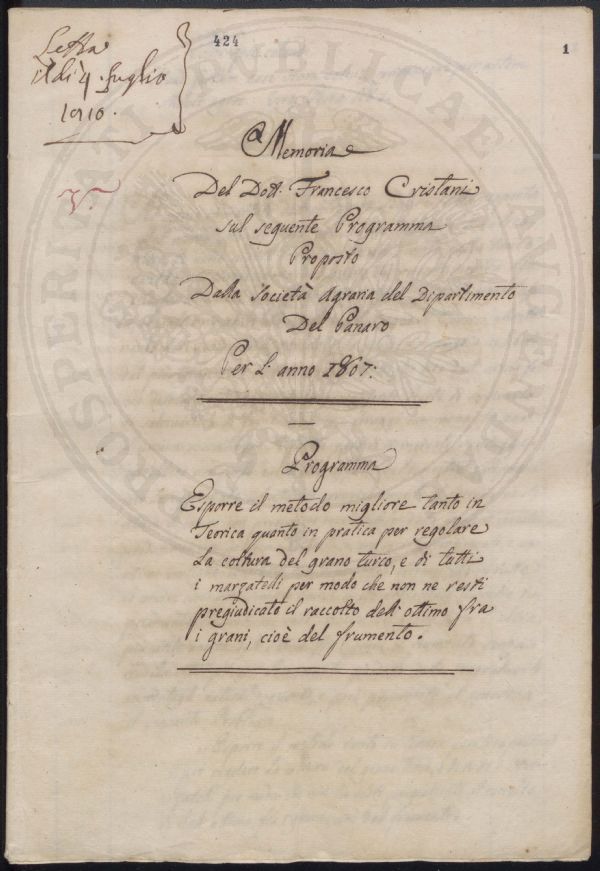 424
1
Letta
il dì 4. Luglio
1810.
V.
Memoria
Del Dott. Francesco Cristani
sul seguente Programma
Proposto
Dalla Società Agraria del Dipartimento
Del Panaro
Per l' anno 1807.
Programma
Esporre il metodo migliore tanto in
Teorica quanto in pratica per regolare
La coltura del grano turco, e di tutti
i marzatelli per modo che non ne resti
pregiudicato il raccolto dell' ottimo fra
i grani, cioè del frumento.
PROSPERITATI PUBLICAE AUGENDAE